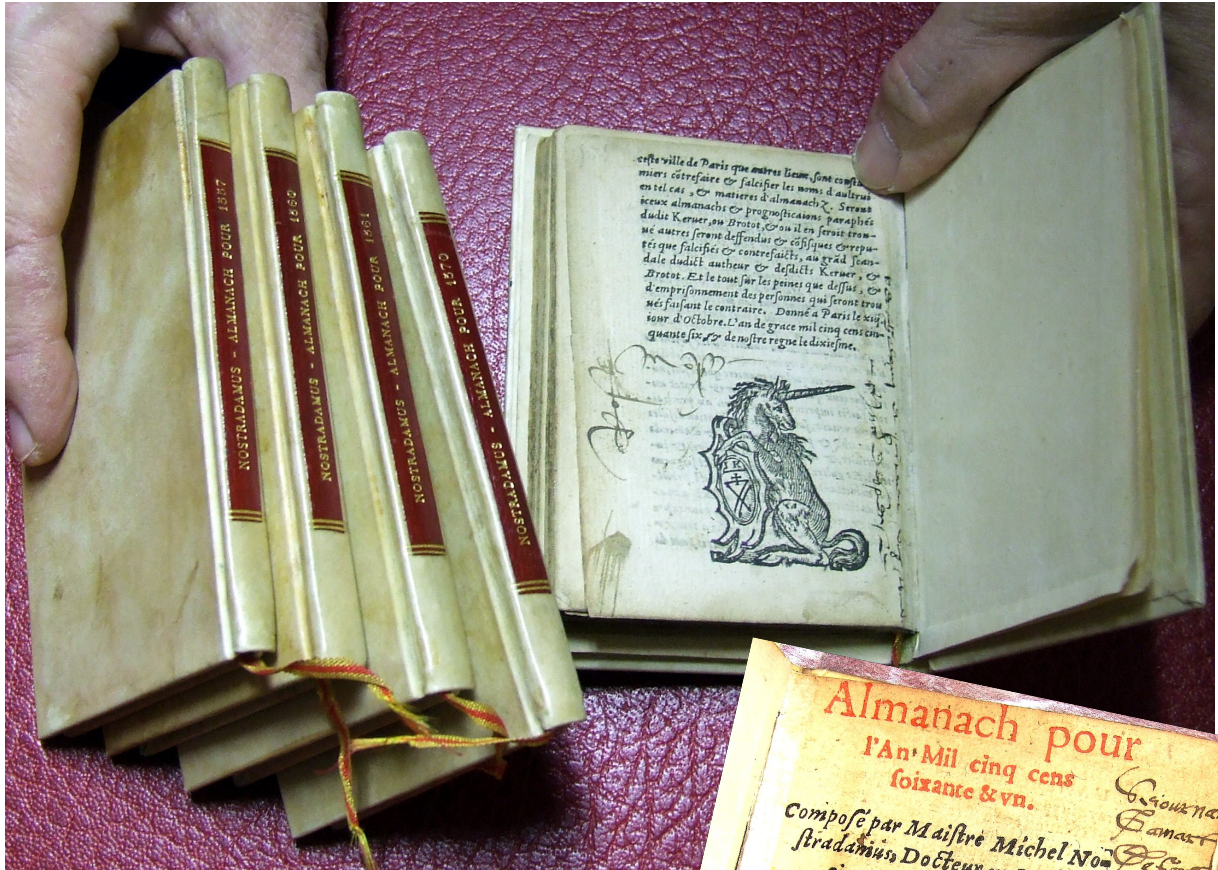 NOSTRADAMUS - ALMANACH POUR 1557
NOSTRADAMUS - ALMANACH POUR 1560
NOSTRADAMUS - ALMANACH POUR 1561
NOSTRADAMUS - ALMANACH POUR 1570
ceste ville de Paris que autres lieux, sont
miers cõtrefaire & falcifier les noms d'aultruy
en tel cas, & matieres d'almanachz. Seront
iceux almanachs & prognosticaions paraphés
dudit Keruer, ou Brotot, & ou il en seroit trou-
ué autres seront deffendus & cõfisques & repu-
tés que falcifiés & contrefaicts, au grãd scan-
dale dudict autheur & desdicts Keruer, &
Brotot. Et le tout sur les peines que dessus, &
d'emprisonnement des personnes qui seront trou
ués faisant le contraire. Donné a Paris le xiij
iour d'Octobre. L'an de grace mil cinq cens cin-
quante six, & de nostre regne le dixiesme.
IK
Almanach pour
l'An Mil cinq cens
soixante & vn.
Composé par Maistre Michel No-
stradamus, Docteur